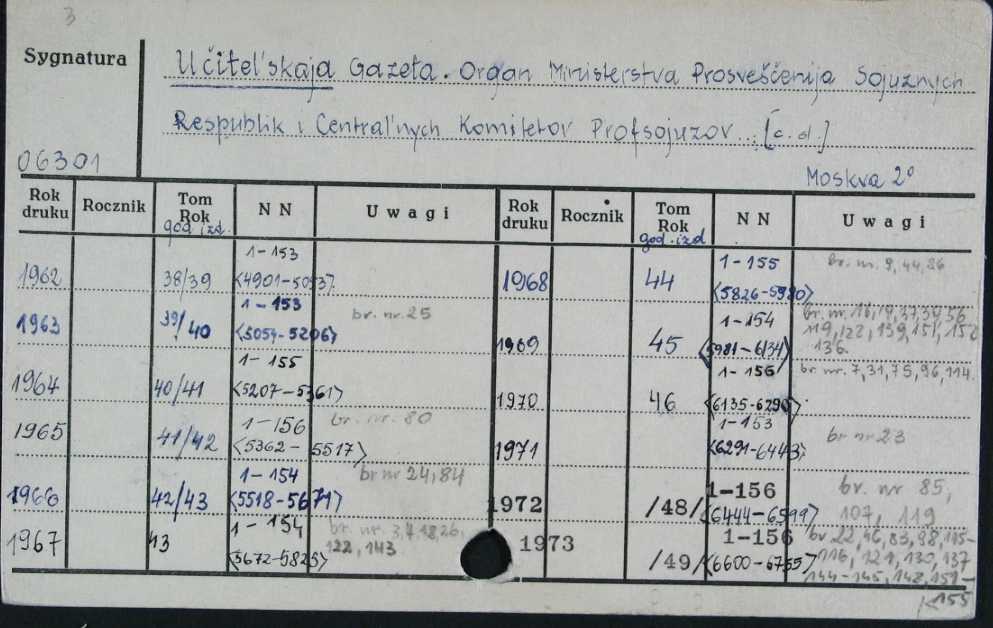 3
Sygnatura
Učitel'skaja Gazeta. Organ Ministerstva Prosveščenija Sojuznych
Respublik i Central'nych Komitetov Profsojuzov... [c.d.]
06301
Moskva 2°
Rok druku Rocznik Tom Rok god. izd. NN Uwagi Rok druku Rocznik Tom Rok god. izd NN Uwagi
1962 38/39 1-153 <4901-5053> 1968 44 1-155 <5826-5980> br. nr. 9, 44, 86
1963 39/40 1-153 <5054-5206> br. nr. 25 1969 45 1-154 <5981-6134> br. nr. 119, 122, 139, 151, 152 136
1964 40/41 1-155 <5207-5361> 1970 46 1-156 <6135-6290> br nr. 7, 31, 75, 96, 114.
1965 41/42 1-156 <5362-5517> br. nr. 80 1971 1-153 <6291-6443> br nr 23
1966 42/43 1-154 <5518-5671> br nr 24, 84 1972 /48/ 1-156 <6444-6599> br. nr 85, 107, 119
1967 43 1-154 <5672-5825> br. nr. 122, 143 1973 /49/ 1-156 <6600-6755> br 22, 46, 83, 98, 115-116, 121, 130, 137 144-145, 148, 151-155